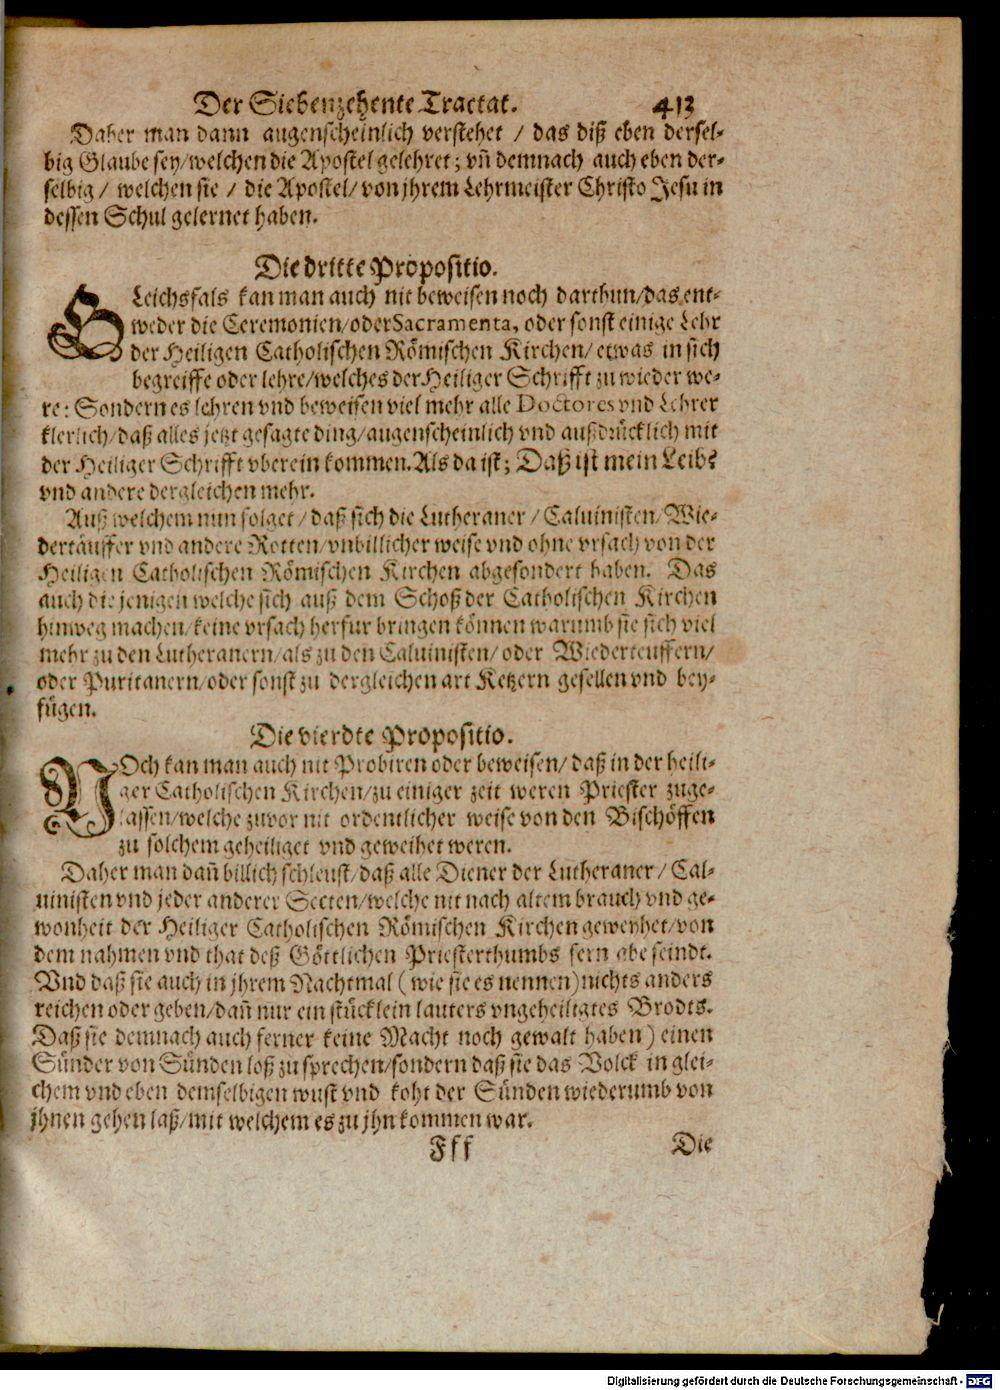 Der Siebenzehente Tractat. 413
Daher man dann augenscheinlich verstehet / das diß eben dersel-
big Glaube sey/welchen die Apostel gelehret; vñ demnach auch eben der-
selbig / welchen sie / die Apostel/ von jhrem Lehrmeister Christo Jesu in
dessen Schul gelernet haben.
Die dritte Propositio.
GLeichsfals kan man auch nit beweisen noch darthun/das ent-
weder die Ceremonien/oder Sacramenta, oder sonst einige Lehr
der Heiligen Catholischen Römischen Kirchen/ etwas in sich
begreiffe oder lehre/welches der Heiliger Schrifft zu wieder we-
re: Sondern es lehren vnd beweisen viel mehr alle Doctores vnd Lehrer
klerlich/daß alles jetzt gesagte ding/augenscheinlich vnd außdrücklich mit
der Heiliger Schrifft vberein kommen. Als da ist; Daß ist mein Leib:
vnd andere dergleichen mehr.
Auß welchem nun folget / daß sich die Lutheraner / Caluinisten/ Wie-
dertäuffer vnd andere Rotten/vnbillicher weise vnd ohne vrsach von der
Heiligen Catholischen Römischen Kirchen abgesondert haben. Das
auch die jenigen welche sich auß dem Schoß der Catholischen Kirchen
hinweg machen/keine vrsach herfur bringen können warumb sie sich viel
mehr zu den Lutheranern/als zu den Caluinisten/ oder Wiederteuffern/
oder Puritanern/oder sonst zu dergleichen art Ketzern gesellen vnd bey-
fügen.
Die vierdte Propositio.
NOch kan man auch nit Probiren oder beweisen/ daß in der heili-
ger Catholischen Kirchen/zu einiger zeit weren Priester zuge-
lassen/welche zuvor nit ordentlicher weise von den Bischöffen
zu solchem geheiliget vnd geweihet weren.
Daher man dañ billich schleust/daß alle Diener der Lutheraner / Cal-
uinisten vnd jeder anderer Secten/welche nit nach altem brauch vnd ge-
wonheit der Heiliger Catholischen Römischen Kirchen geweyhet/von
dem nahmen vnd that deß Göttlichen Priesterthumbs fern abe seindt.
Vnd daß sie auch in jhrem Nachtmal ( wie sie es nennen) nichts anders
reichen oder geben/dañ nur ein stücklein lauters vngeheiligtes Brodts.
Daß sie demnach auch ferner keine Macht noch gewalt haben) einen
Sünder von Sünden loß zu sprechen/sondern daß sie das Volck in glei-
chem vnd eben demselbigen wust vnd koht der Sünden wiederumb von
jhnen gehen laß/mit welchem es zu jhn kommen war.
Fff Die
Digitalisierung gefördert durch die Deutsche Forschungsgemeinschaft - DFG